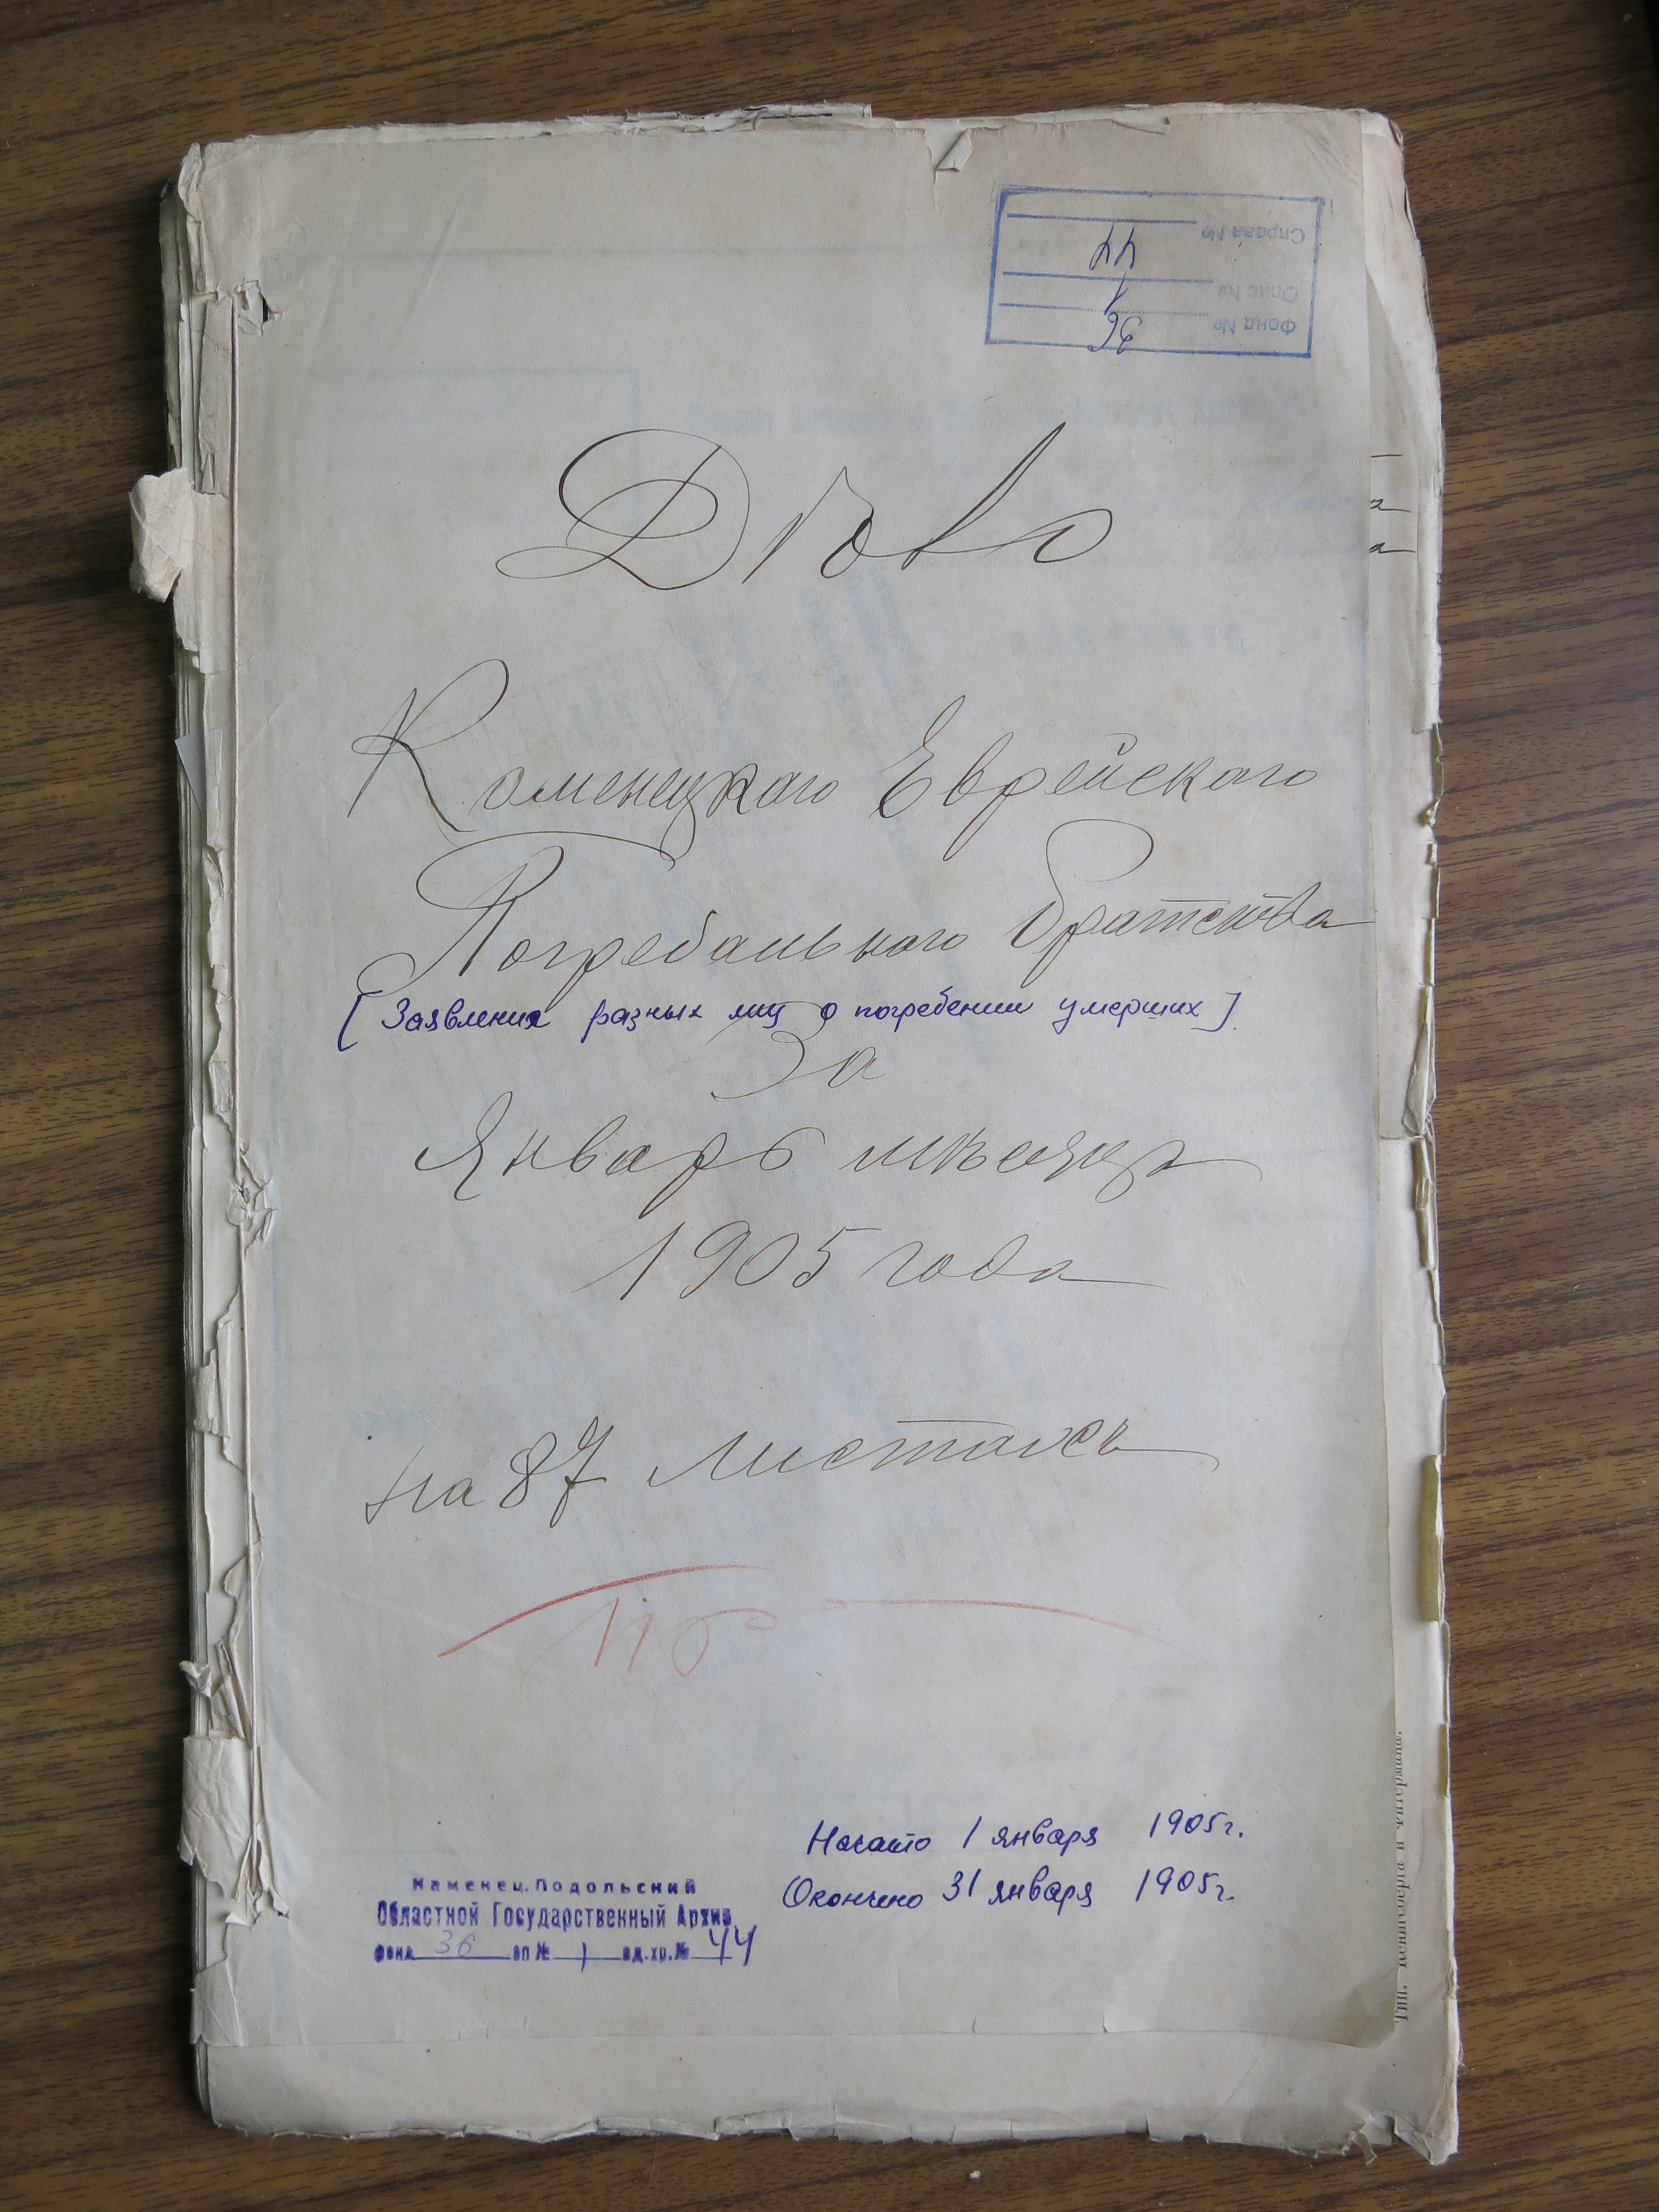 Справа № 44
Опис № 1
Фонд № 36
Дѣло
Каменецкаго Еврейскаго
Погребальнаго братства
[Заявления разных лиц о погребении умерших].
За
Январь мѣсяцъ
1905 года
на 87 листахъ
Начато 1 января 1905 г.
Окончено 31 января 1905 г.
Каменец.Подольский
Областной Государственный Архив
фонд 36 оп № 1 ед.хр.№ 44
Тип.